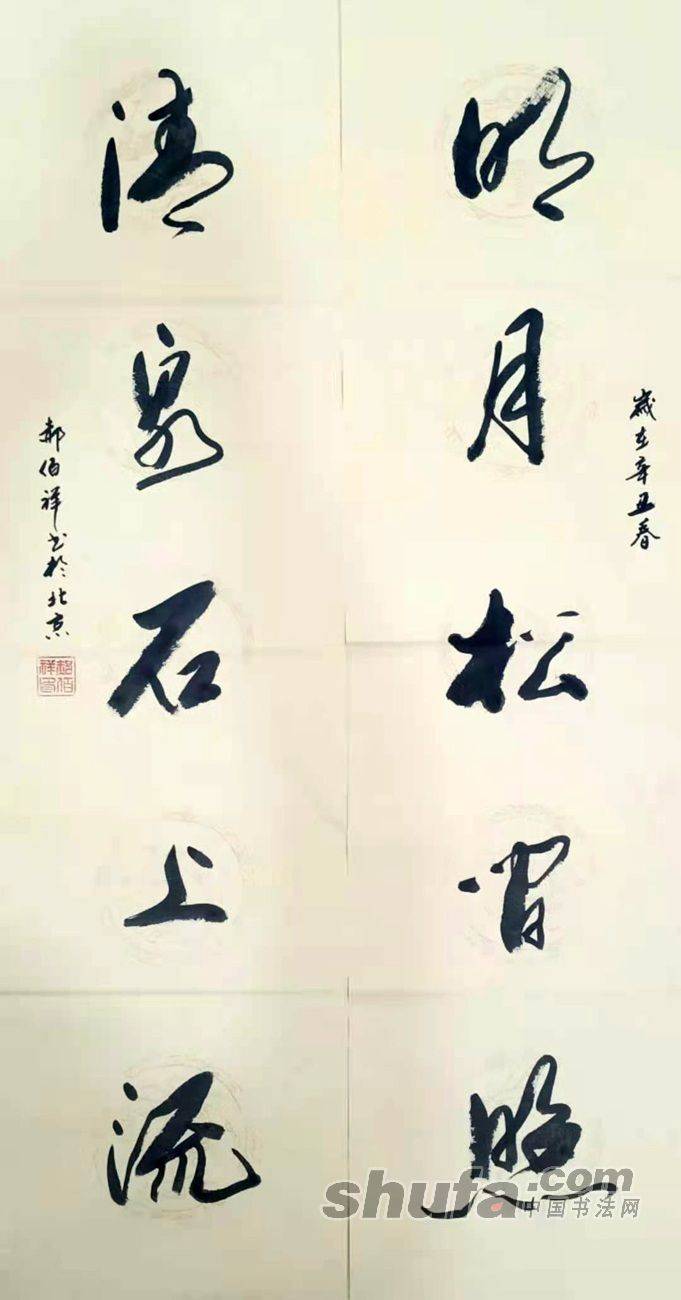 岁在辛丑春
明月松间照
清泉石上流
郝伯祥书于北京
郝伯祥
shufa.com
中国书法网